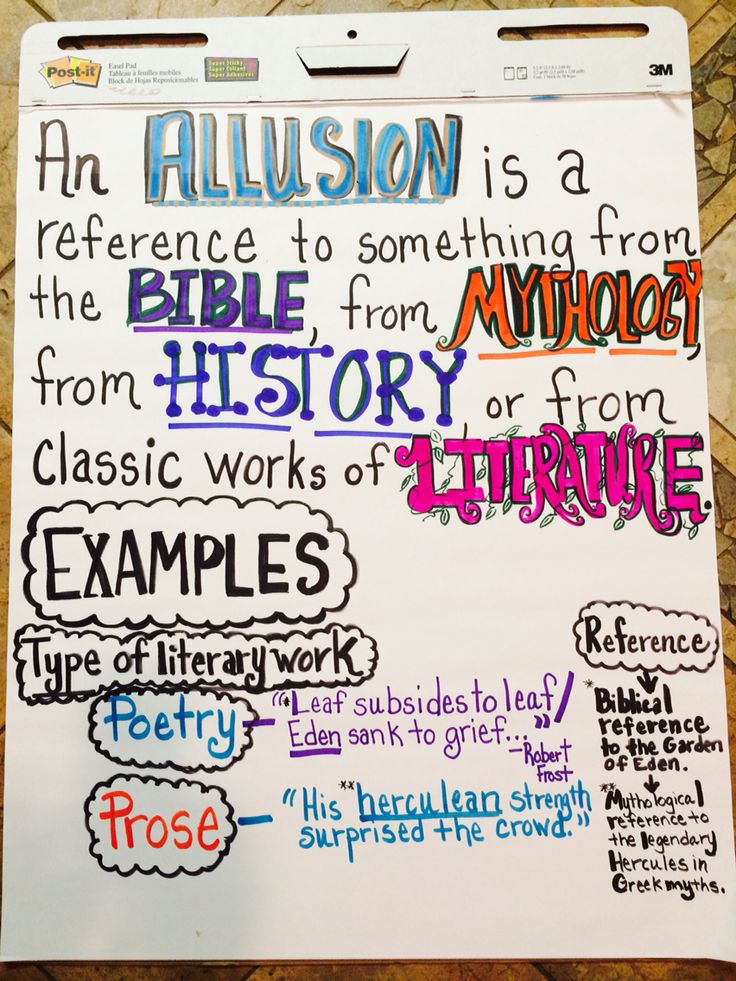 Post-it
Easel Pad
Tableau à feuilles mobiles
Block de Hojas Reposicionables
Super Sticky
Super Collant
Super Adhesivos
3M
An ALLUSION is a
reference to something from
the BIBLE, from MYTHOLOGY,
from HISTORY, or from
classic works of LITERATURE.
EXAMPLES
Type of literary work
Reference
Poetry – "*Leaf subsides to leaf/
Eden sank to grief..."
–Robert
Frost
*Biblical
reference
to the Garden
of Eden.
Prose – "His **herculean strength
surprised the crowd."
**Mythological
reference to
the legendary
Hercules in
Greek myths.